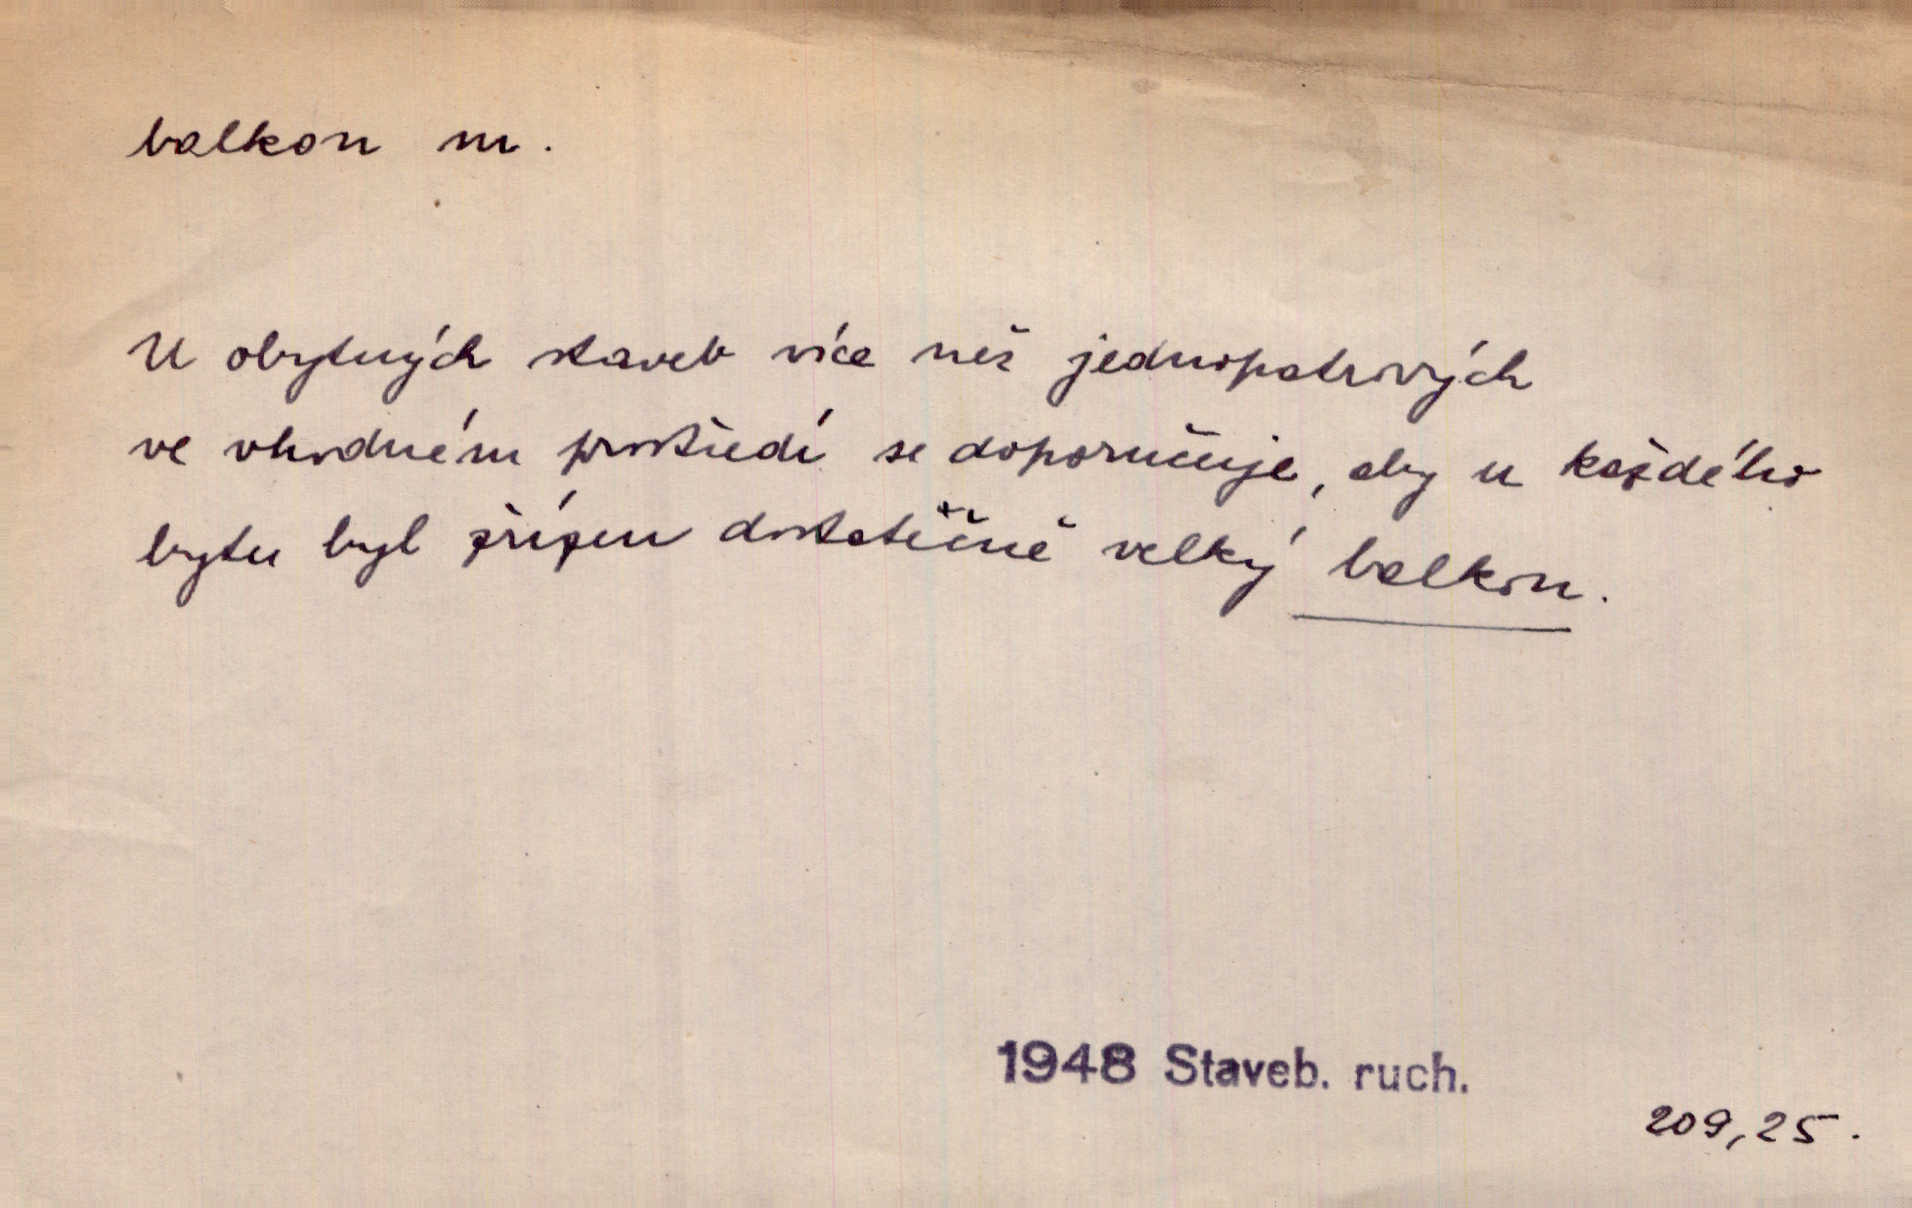 balkon m.
U obytných staveb více než jednopatrových
ve vhodném prostředí se doporučuje, aby u každého
bytu byl zřízen dostatečně velký balkon.
1948 Staveb. ruch.
209,25.